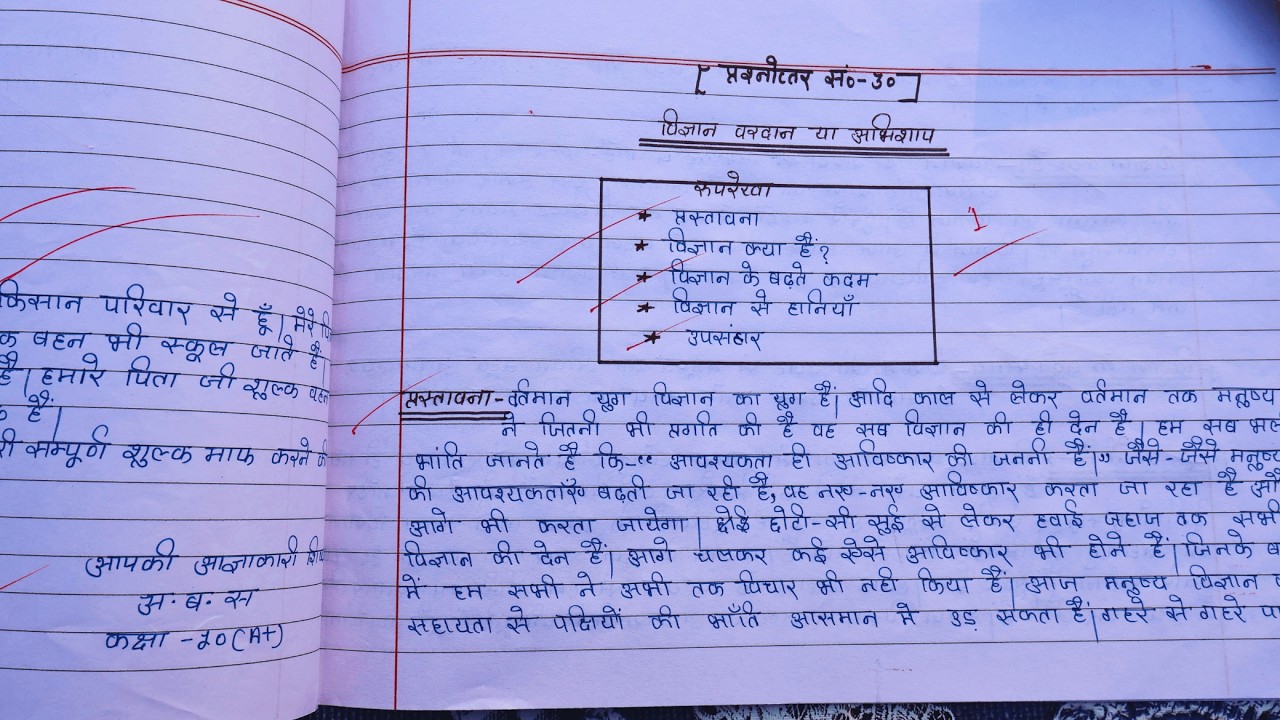 किसान परिवार से हूँ। मेरे
बहन भी स्कूल जाते हैं
है। हमारे पिता जी शुल्क
हैं।
सम्पूर्ण शुल्क माफ करने
आपकी आज्ञाकारी
अ. ब. स
कक्षा -१०(A+)
[प्रश्नोत्तर सं०-३०]
विज्ञान वरदान या अभिशाप
रूपरेखा
★ प्रस्तावना
★ विज्ञान क्या हैं?
★ विज्ञान के बढ़ते कदम
★ विज्ञान से हानियाँ
★ उपसंहार
1
प्रस्तावना- वर्तमान युग विज्ञान का युग हैं। आदि काल से लेकर वर्तमान तक मनुष्य
ने जितनी भी प्रगति की है वह सब विज्ञान की ही देन है। हम सब
भांति जानते है कि-"आवश्यकता ही आविष्कार की जननी हैं।" जैसे-जैसे मनुष्य
की आवश्यकताएँ बढ़ती जा रही है, वह नए-नए आविष्कार करता जा रहा है
आगे भी करता जायेगा। छोटी-सी सुई से लेकर हवाई जहाज तक सभी
विज्ञान की देन हैं। आगे चलकर कई ऐसे आविष्कार भी होने हैं। जिनके
में हम सभी ने अभी तक विचार भी नही किया हैं। आज मनुष्य विज्ञान
सहायता से पक्षियों की भाँति आसमान मे उड़ सकता हैं। गहरे से गहरे